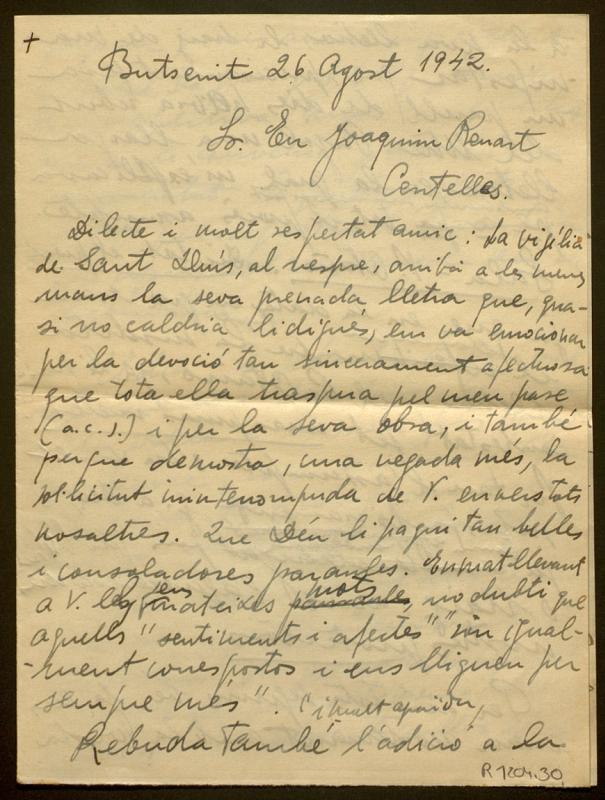 +
Butsenit 26 Agost 1942.
Sr. En Joaquim Renart
Centelles.
Dilecte i molt respectat amic: La vigília
de Sant Lluís, al vespre, arribà a les meves
mans la seva preuada lletra que, qua-
si no caldria li digués, em va emocionar
per la devoció tan sincerament afectuosa
que tota ella traspua pel meu pare
(a.c.s.) i per la seva obra, i també
perque demostra, una vegada més, la
sol·licitut inintenompuda de V. envers tots
nosaltres. Que Déu li pagui tan belles
i consoladores paraules. Enmatllevant
a V. les mateixes paraules, mots no dubti que
aquells "sentiments i afectes" són igual-
ment corresposts i ens lliguen per
sempre més".
Rebuda també l'adició a la
R 1204.30